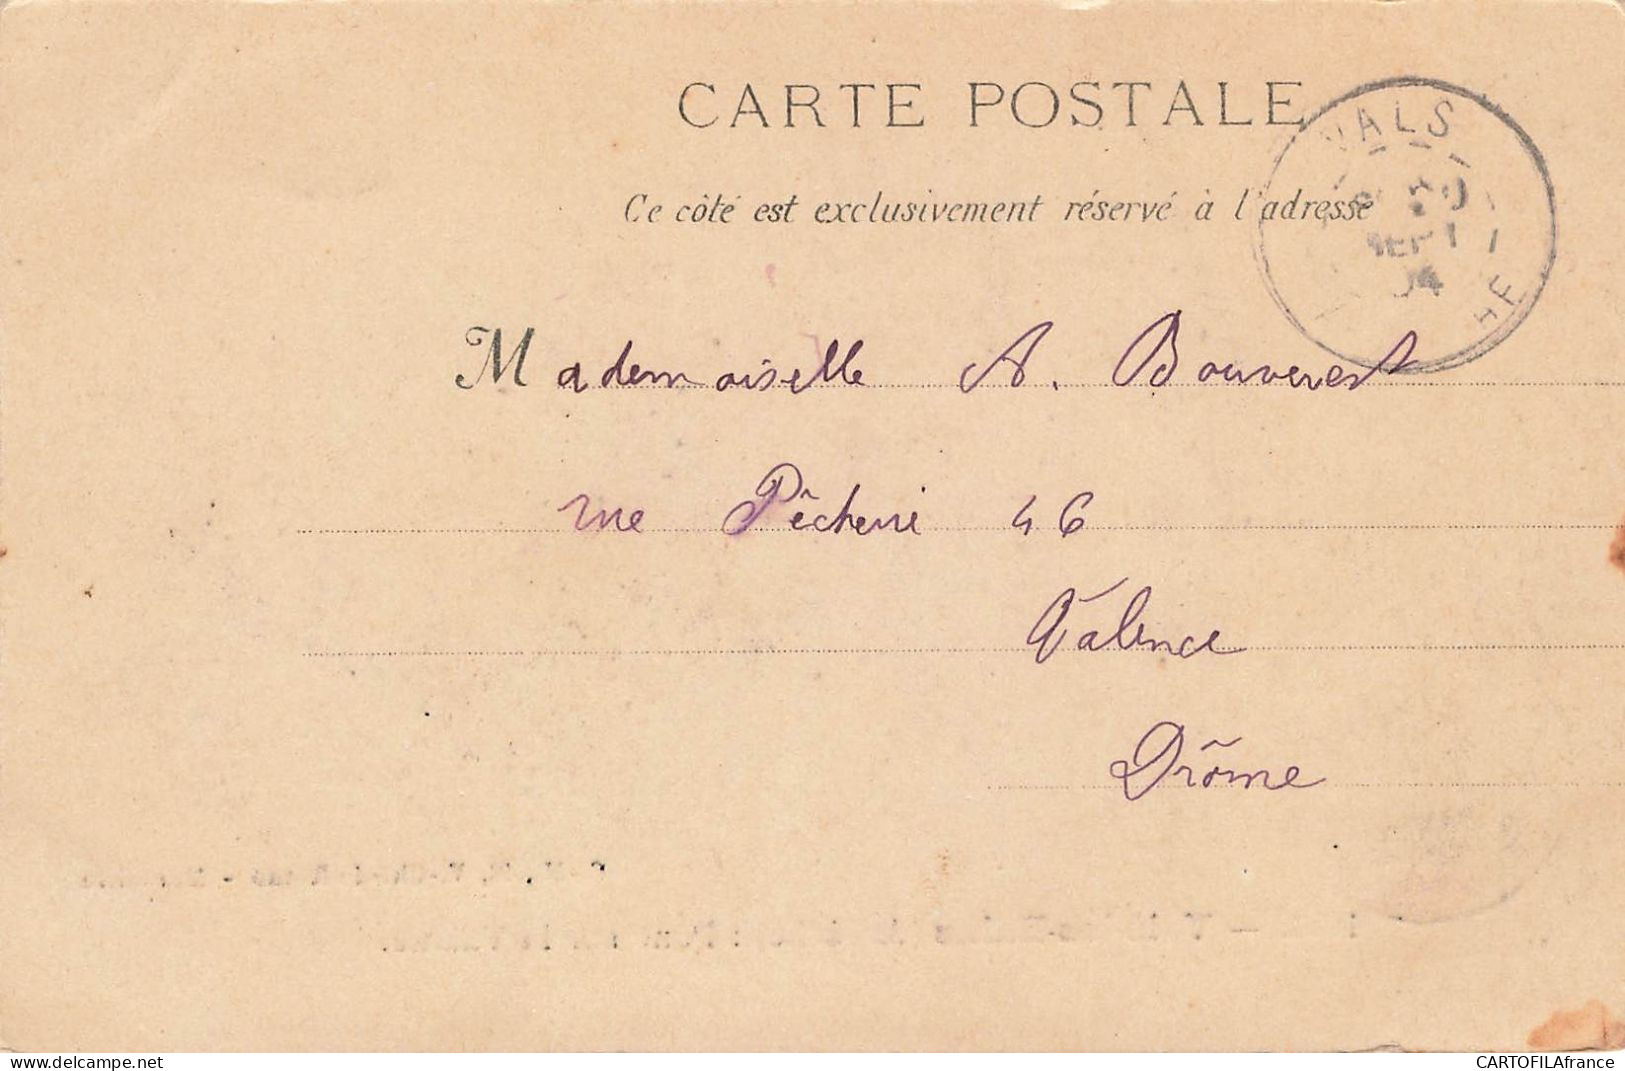 CARTE POSTALE
VALS
Ce côté est exclusivement réservé à l'adresse
SEPT
04
HE
Mademoiselle A. Bouverest
rue Pêcherie 46
Valence
Drôme
www.delcampe.net
CARTOFILAfrance